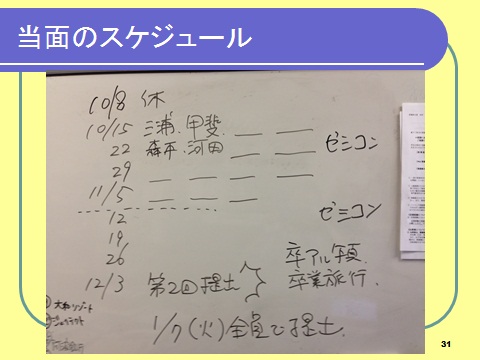 当面のスケジュール
10/8 休
10/15 三浦、甲斐
22 森本・河田 ゼミコン
29
11/5
12 ゼミコン
19
26 卒アル写真
12/3 第2回提出 卒業旅行
1/7(火)全員で提出
31